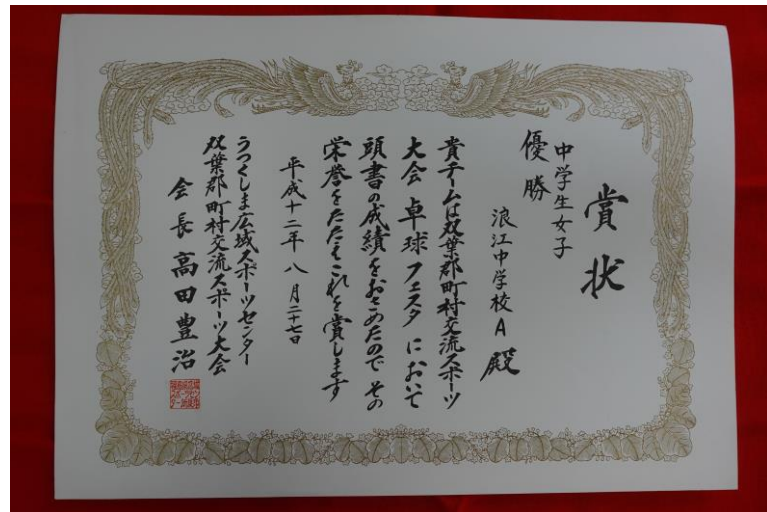 賞状
中学生女子
優勝
浪江中学校A殿
貴チームは双葉郡町村交流スポーツ
大会卓球フェスタにおいて
頭書の成績をおさめたのでその
栄誉をたたえこれを賞します
平成十二年八月二十七日
うつくしま広域スポーツセンター
双葉郡町村交流スポーツ大会
会長高田豊治